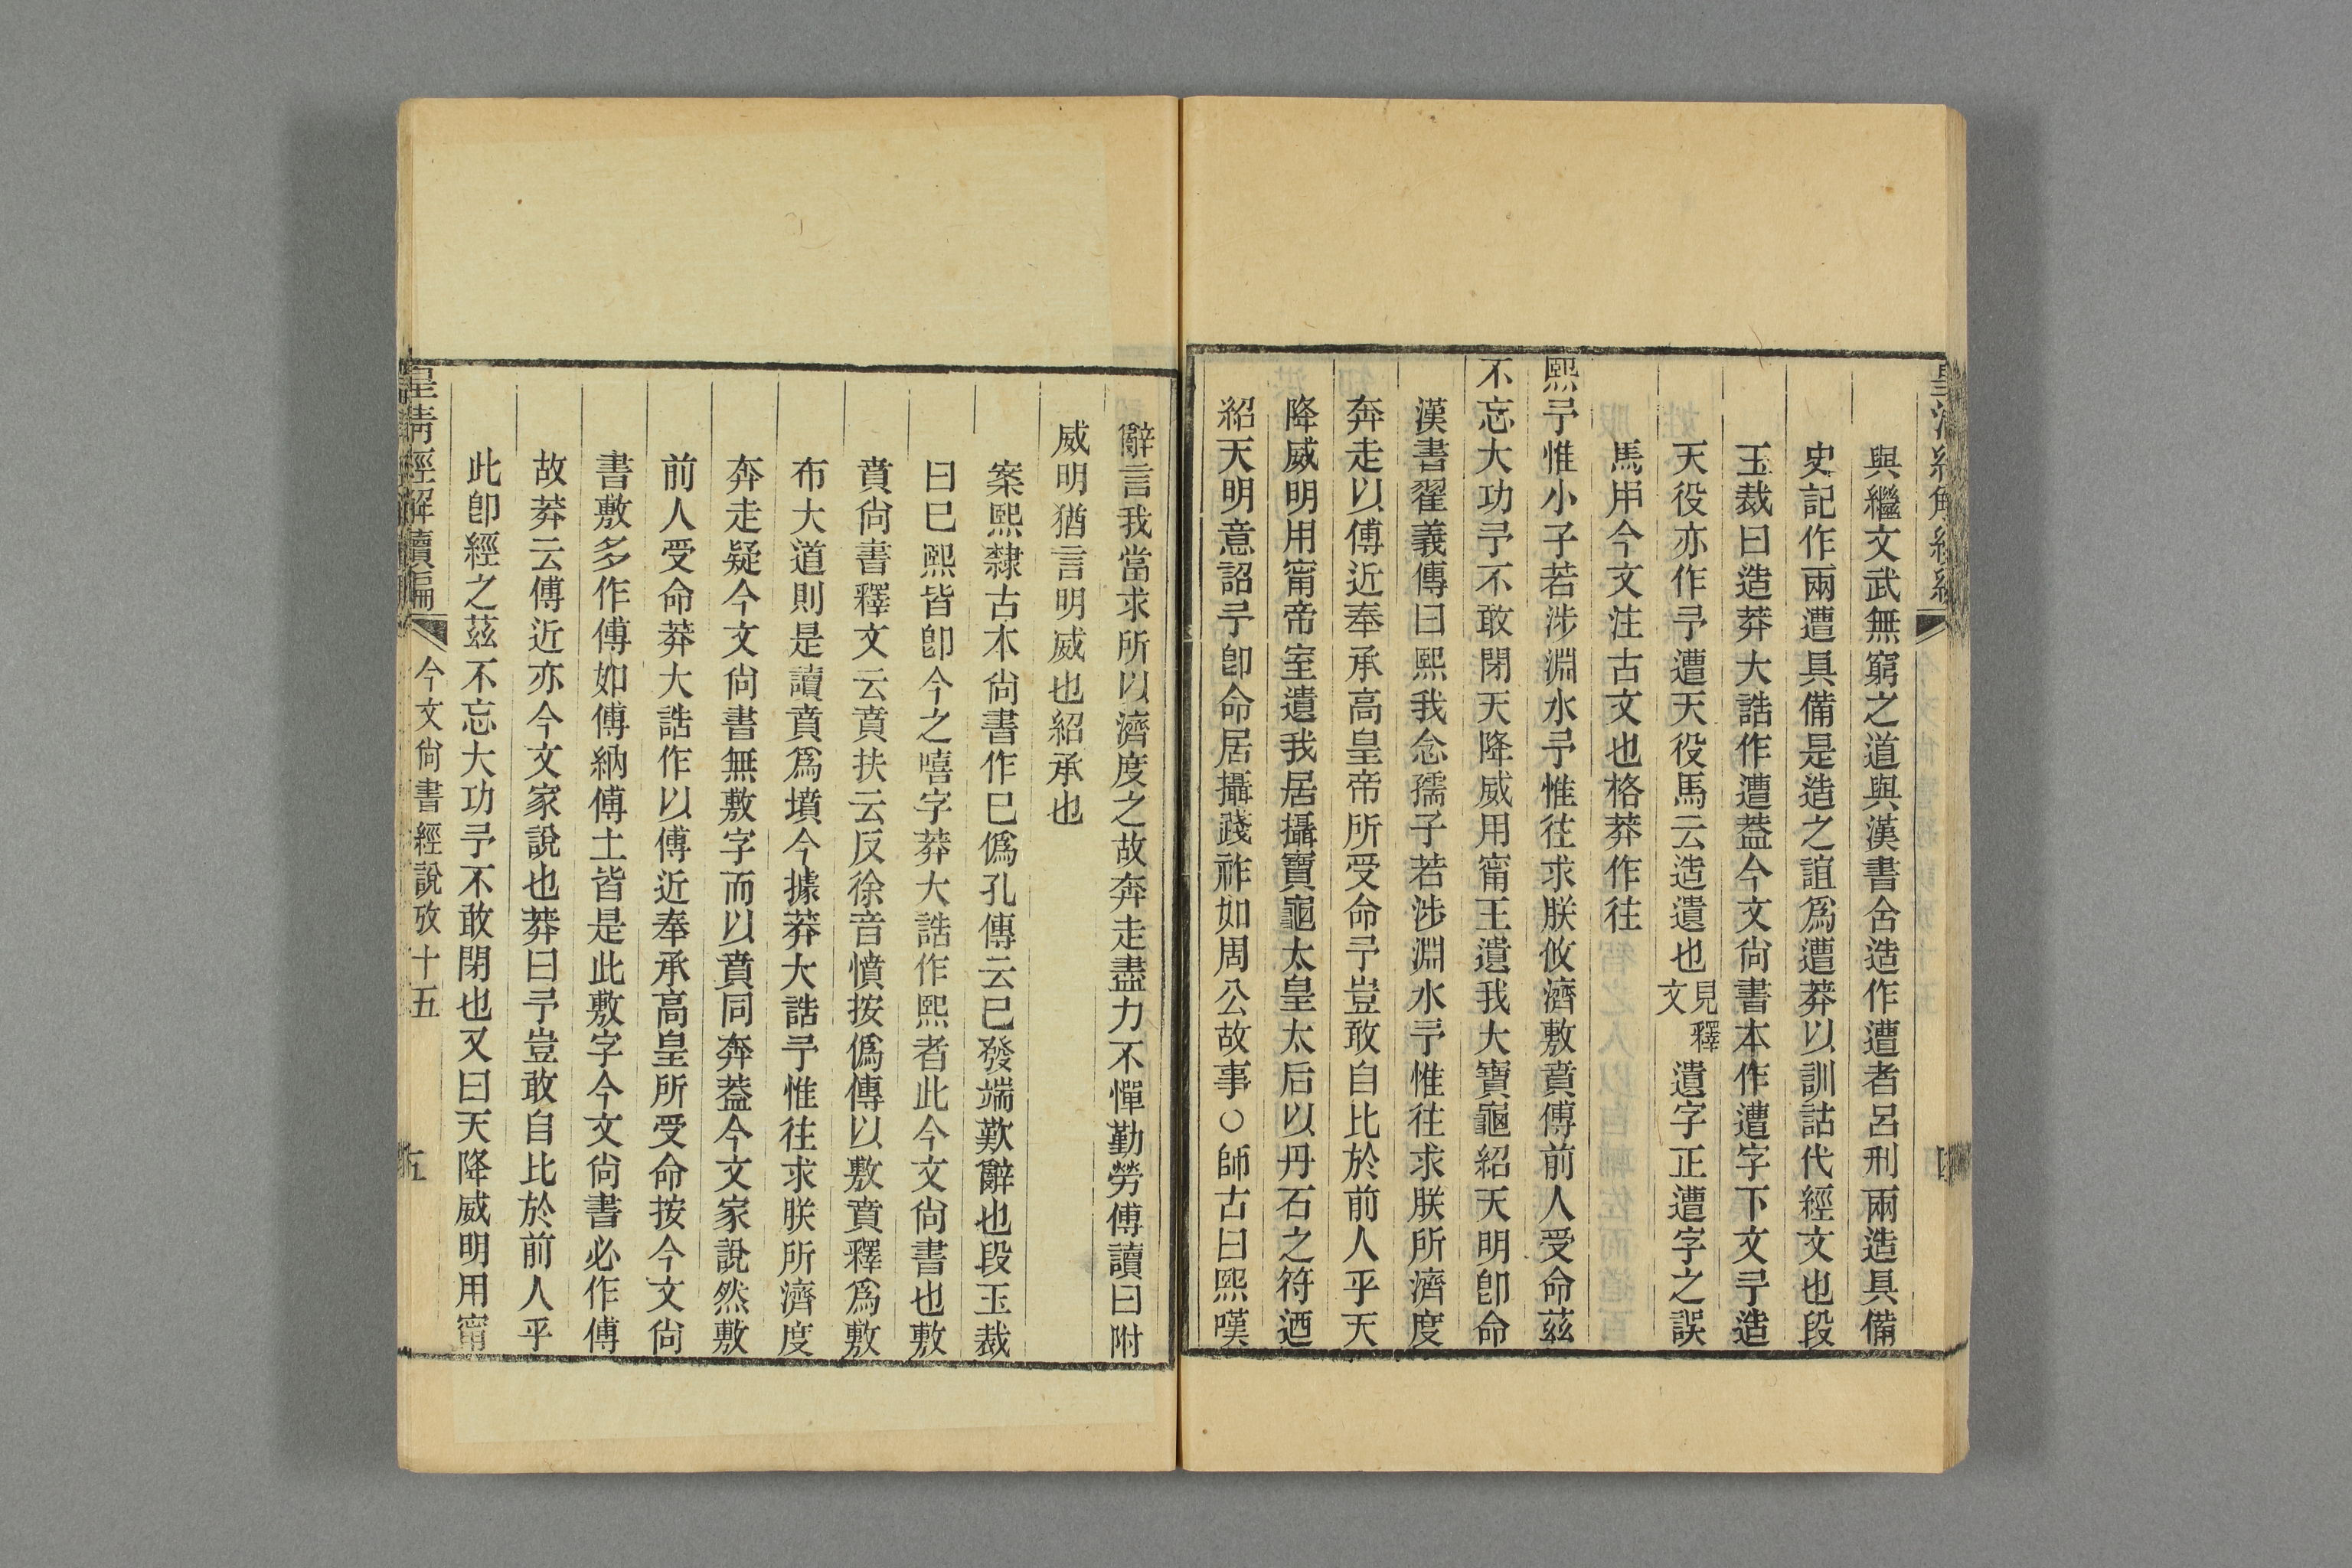 與繼文武無窮之道與漢書合造作遭者呂刑兩造具備
史記作兩遭具備是造之誼爲遭莽以訓詁代經文也段
玉裁曰造莽大誥作遭葢今文尙書本作遭字下文予造
天役亦作予遭天役馬云造遺也見釋文遺字正遭字之誤
馬用今文注古文也格莽作往
熙予惟小子若涉淵水予惟往求朕攸濟敷賁傅前人受命茲
不忘大功予不敢閉天降威用甯王遺我大寶龜紹天明卽命
漢書翟義傳曰熙我念孺子若涉淵水予惟往求朕所濟度
奔走以傅近奉承高皇帝所受命予豈敢自比於前人乎天
降威明用甯帝室遺我居攝寶龜太皇太后以丹石之符迺
紹天明意詔予卽命居攝踐祚如周公故事○師古曰熙嘆
辭言我當求所以濟度之故奔走盡力不憚勤勞傅讀曰附
威明猶言明威也紹承也
案熙隸古本尙書作巳僞孔傳云巳發端歎辭也段玉裁
曰巳熙皆卽今之嘻字莽大誥作熙者此今文尙書也敷
賁尙書釋文云賁扶云反徐音憤按僞傳以敷賁釋爲敷
布大道則是讀賁爲墳今據莽大誥予惟往求朕所濟度
奔走疑今文尙書無敷字而以賁同奔葢今文家說然敷
前人受命莽大誥作以傅近奉承高皇所受命按今文尙
書敷多作傅如傅納傅土皆是此敷字今文尙書必作傅
故莽云傅近亦今文家說也莽曰予豈敢自比於前人乎
此卽經之茲不忘大功予不敢閉也又曰天降威明用甯
皇清經解續編 今文尙書經說攷十五 五